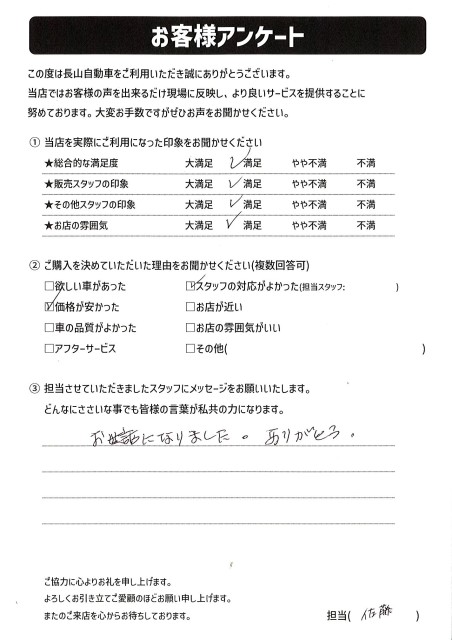 お客様アンケート
この度は長山自動車をご利用いただき誠にありがとうございます。
当店ではお客様の声を出来るだけ現場に反映し、より良いサービスを提供することに
努めております。大変お手数ですがぜひお声をお聞かせください。
① 当店を実際にご利用になった印象をお聞かせください
★総合的な満足度 大満足 ✓満足 やや不満 不満
★販売スタッフの印象 大満足 ✓満足 やや不満 不満
★その他スタッフの印象 大満足 ✓満足 やや不満 不満
★お店の雰囲気 大満足 ✓満足 やや不満 不満
② ご購入を決めていただいた理由をお聞かせください(複数回答可)
□欲しい車があった ☑スタッフの対応がよかった(担当スタッフ: )
☑価格が安かった □お店が近い
□車の品質がよかった □お店の雰囲気がいい
□アフターサービス □その他( )
③ 担当させていただきましたスタッフにメッセージをお願いいたします。
どんなにささいな事でも皆様の言葉が私共の力になります。
お世話になりました。ありがとう。
ご協力に心よりお礼を申し上げます。
よろしくお引き立てご愛顧のほどお願い申し上げます。
またのご来店を心からお待ちしております。 担当( 佐藤 )